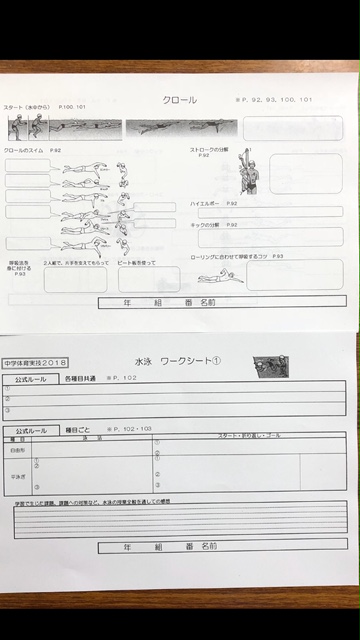 クロール ※P, 92, 93, 100, 101
スタート（水中から） P.100, 101
クロールのスイム P.92
ストロークの分解 P.92
ハイエルボー P.92
キックの分解 P.92
呼吸法を身に付ける P.93
2人組で、片手を支えてもらって
ビート板を使って
ローリングに合わせて呼吸するコツ P.93
年 組 番 名前
中学体育実技2018
水泳 ワークシート①
公式ルール 各種目共通 ※P, 102
①
②
③
公式ルール 種目ごと ※P, 102・103
種目 泳法 スタート・折り返し・ゴール
自由形 ①
②
平泳ぎ ① ①
② ②
③ ③
学習で生じた課題、課題への対策など、水泳の授業全般を通しての感想
年 組 番 名前